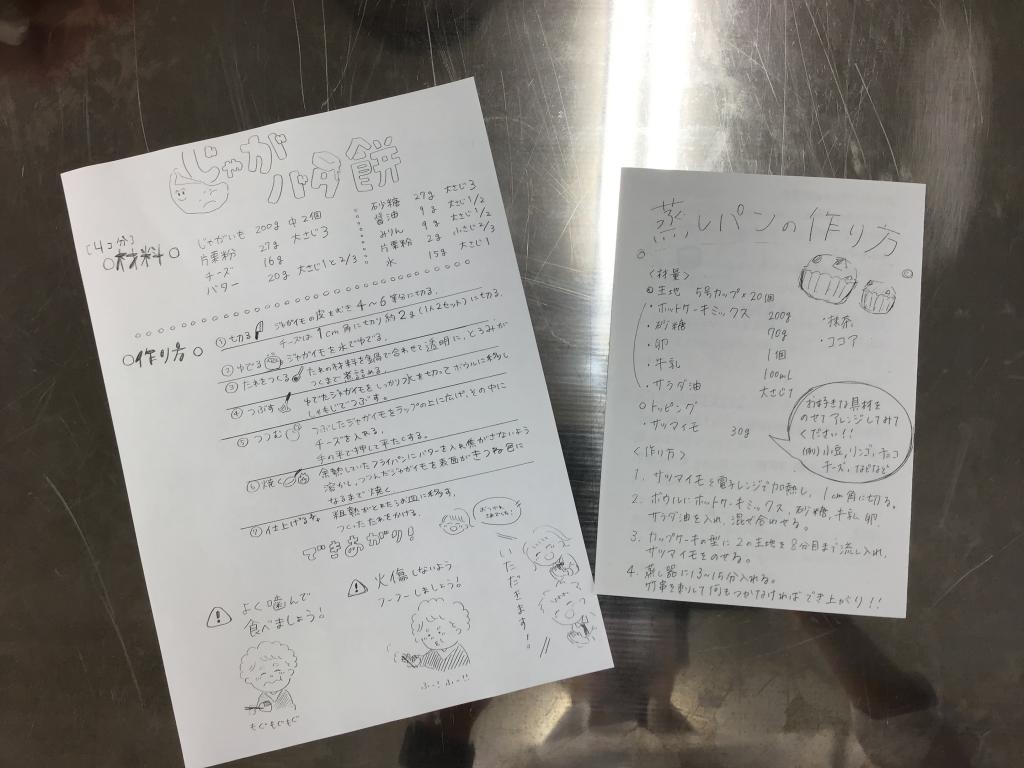 じゃが
バタ餅
[4コ分]
○材料○
じゃがいも 200g 中2個
片栗粉 27g 大さじ3
チーズ 16g
バター 20g 大さじ1と2/3
砂糖 27g 大さじ3
醤油 9g 大さじ1/2
みりん 9g 大さじ1/2
片栗粉 2g 小さじ2/3
水 15g 大さじ1
○作り方○
①切る ジャガイモの皮をむき4〜6等分に切る。
チーズは1cm角に切り約2g(1人2セット)に切る。
②ゆでる ジャガイモを水でゆでる。
③たれをつくる たれの材料を全部で合わせて透明に、とろみが
つくまで煮詰める。
④つぶす ゆでたジャガイモをしっかり水を切ってボウルに移し
しゃもじでつぶす。
⑤つつむ つぶしたジャガイモをラップの上にたげ、その中に
チーズを入れる。
手の平で押して平たくする。
⑥焼く 余熱していたフライパンにバターを入れ焦がさないよう
溶かし、つつんだジャガイモを表面がきつね色に
なるまで焼く
⑦仕上げる 粗熱がとれたら皿に移す。
ついたたれをかける。
できあがり!
いただきます!
よく噛んで
食べましょう!
もぐもぐもぐ
火傷しないよう
フーフーしましょう!
ふー!ふー!!
蒸しパンの作り方
〈材量〉
生地 5号カップ×20個
・ホットケーキミックス 200g
・砂糖 70g
・卵 1個
・牛乳 100mL
・サラダ油 大さじ1
・抹茶
・ココア
○トッピング
・サツマイモ 30g
お好きな具材を
のせてアレンジしてみて
ください!!
(例)小豆、リンゴ、チョコ
チーズ、などなど
〈作り方〉
1. サツマイモを電子レンジで加熱し、1cm角に切る。
2. ボウルにホットケーキミックス、砂糖、牛乳、卵、
サラダ油を入れ、混ぜ合わせる。
3. カップケーキの型に2の生地を8分目まで流し入れ、
サツマイモをのせる。
4. 蒸し器に13〜15分入れる。
竹串を刺して何もつかなければでき上がり!!